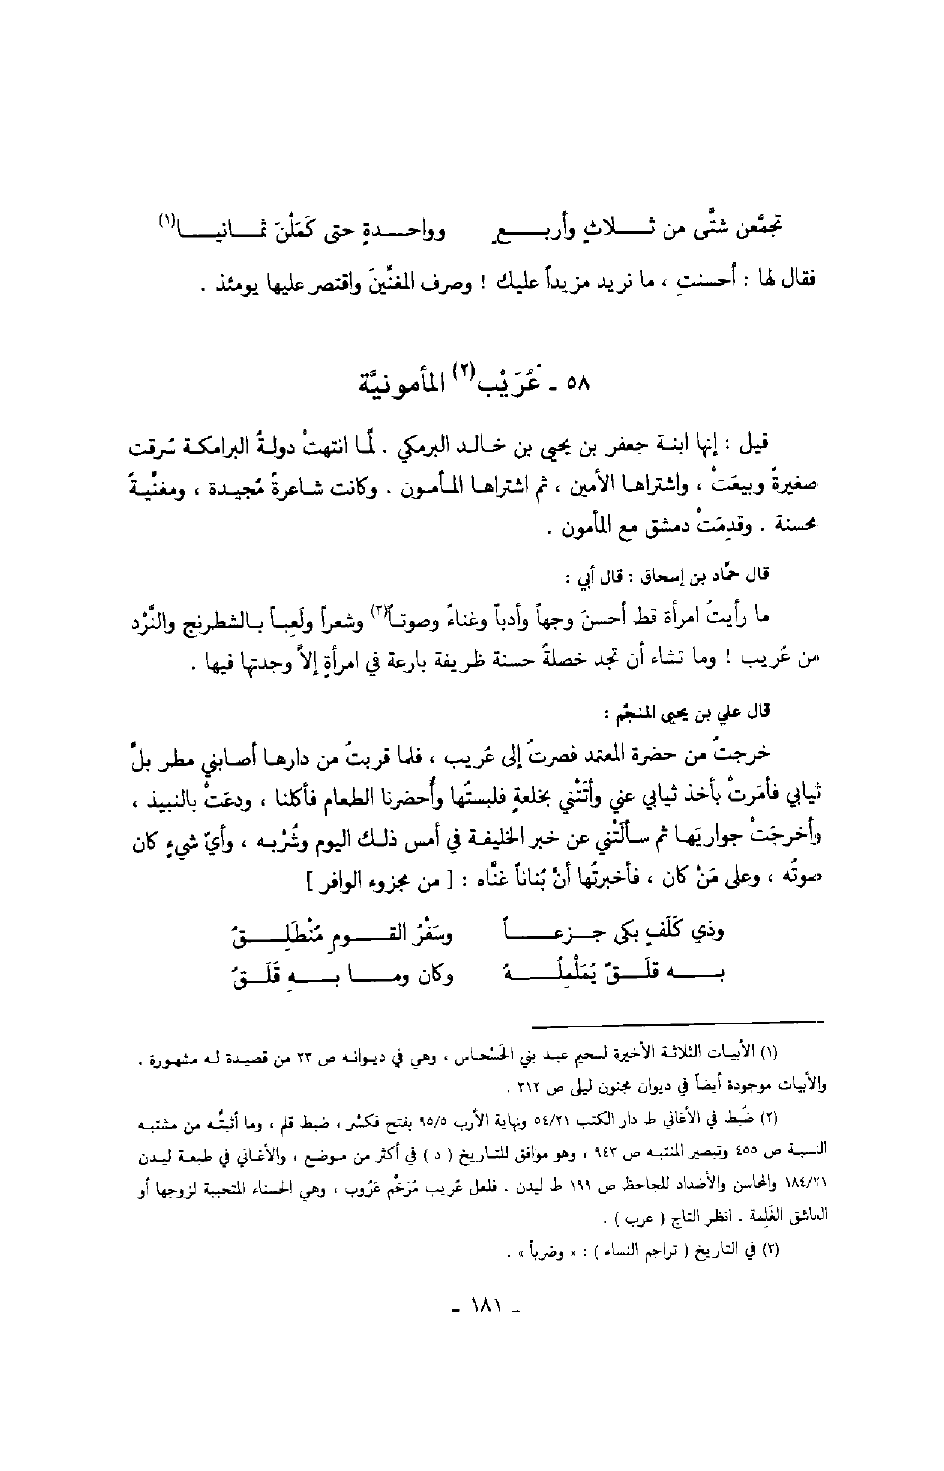 تجمَّعن شتَّى من ثلاثٍ وأربعٍ وواحدةٍ حتى كَمَلْنَ ثمانيا(١)
فقال لها : أحسنتِ ، ما نريد مزيداً عليك ! وصرف المغنِّينَ واقتصر عليها يومئذ .
٥٨ - عُرَيْب(٢) المأمونيَّة
قيل : إنها ابنة جعفر بن يحيى بن خالد البرمكي . لمَّا انتهتْ دولةُ البرامكة سُرقت
صغيرةً وبيعَتْ ، واشتراها الأمين ، ثم اشتراها المأمون . وكانت شاعرةً مُجيدة ، ومغنِّيةً
محسنة . وقدِمَتْ دمشق مع المأمون .
قال حمَّاد بن إسحاق : قال أبي :
ما رأيتُ امرأة قط أحسنَ وجهاً وأدباً وغناءً وصوتاً(٣) وشعراً ولَعِباً بالشطرنج والنَّرْد
من عُريب ! وما تشاء أن تجد خصلةً حسنة ظريفة بارعة في امرأةٍ إلاَّ وجدتها فيها .
قال علي بن يحيى المنجِّم :
خرجتُ من حضرة المعتمد فصرتُ إلى عُريب ، فلما قربتُ من دارها أصابني مطر بلَّ
ثيابي فأمَرتْ بأخذ ثيابي عني وأتَتْني بخلعةٍ فلبستُها وأُحضرنا الطعام فأكلنا ، ودعَتْ بالنبيذ ،
وأخرجَتْ جواريَها ثم سألَتْني عن خبر الخليفة في أمس ذلك اليوم وشُرْبه ، وأيّ شيءٍ كان
صوتُه ، وعلى مَنْ كان ، فأخبرتُها أنّ بُناناً غنَّاه : [ من مجزوء الوافر ]
وذي كَلَفٍ بكى جزعاً وسَفْرُ القوم مُنْطَلِقُ
به قلَقٌ يُمَلْمِلُهُ وكان وما به قَلَقُ
(١) الأبيات الثلاثة الأخيرة لسحيم عبد بني الحَسْحاس ، وهي في ديوانه ص ٢٣ من قصيدة له مشهورة .
والأبيات موجودة أيضاً في ديوان مجنون ليلى ص ٣١٢ .
(٢) ضُبط في الأغاني ط دار الكتب ٥٤/٢١ ونهاية الأرب ٩٥/٥ بفتح فكسْر ، ضبط قلم ، وما أثبتُّه من مشتبه
النسبة ص ٤٥٥ وتبصير المنتبه ص ٩٤٣ ، وهو موافق للتاريخ ( د ) في أكثر من موضع ، والأغاني في طبعة ليدن
١٨٤/٢١ والمحاسن والأضداد للجاحظ ص ١٩٩ ط ليدن . فلعل عُريب مُرَخَّم عَرُوب ، وهي الحسناء المتحببة لزوجها أو
العاشق الغَلِمة . انظر التاج ( عرب ) .
(٣) في التاريخ ( تراجم النساء ) : « وضرباً » .
- ١٨١ -